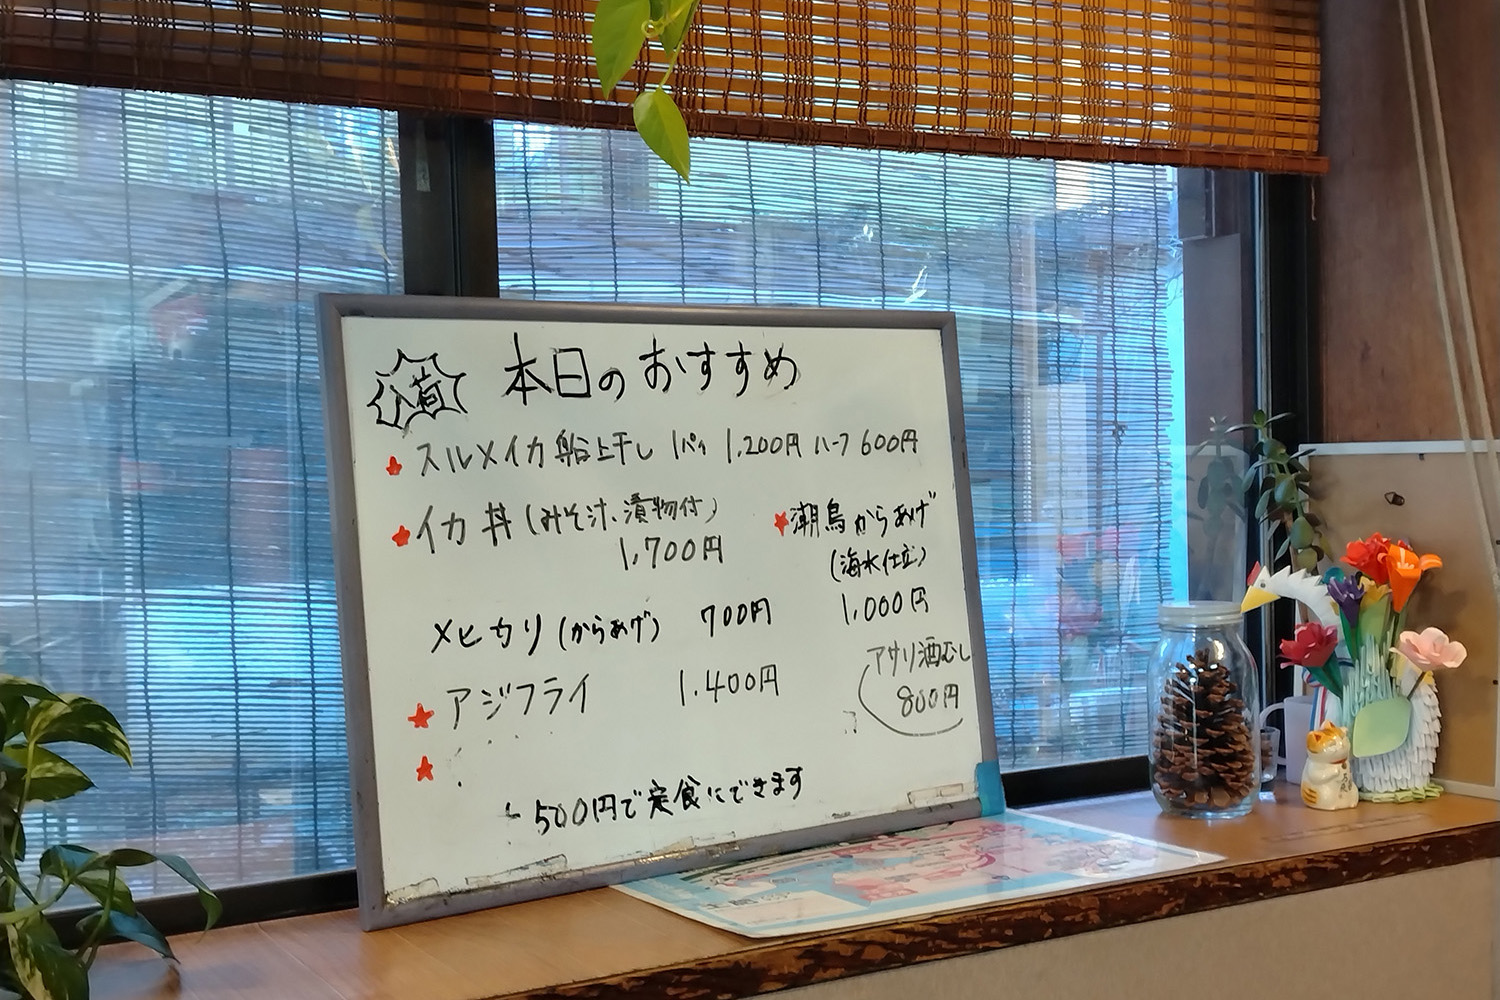 入荷 本日のおすすめ
スルメイカ船上干し 1パイ 1,200円 ハーフ 600円
イカ丼(みそ汁、漬物付)
1,700円
潮鳥からあげ
(海水仕立)
1,000円
メヒカリ(からあげ) 700円
アジフライ 1,400円
アサリ酒むし
800円
500円で定食にできます